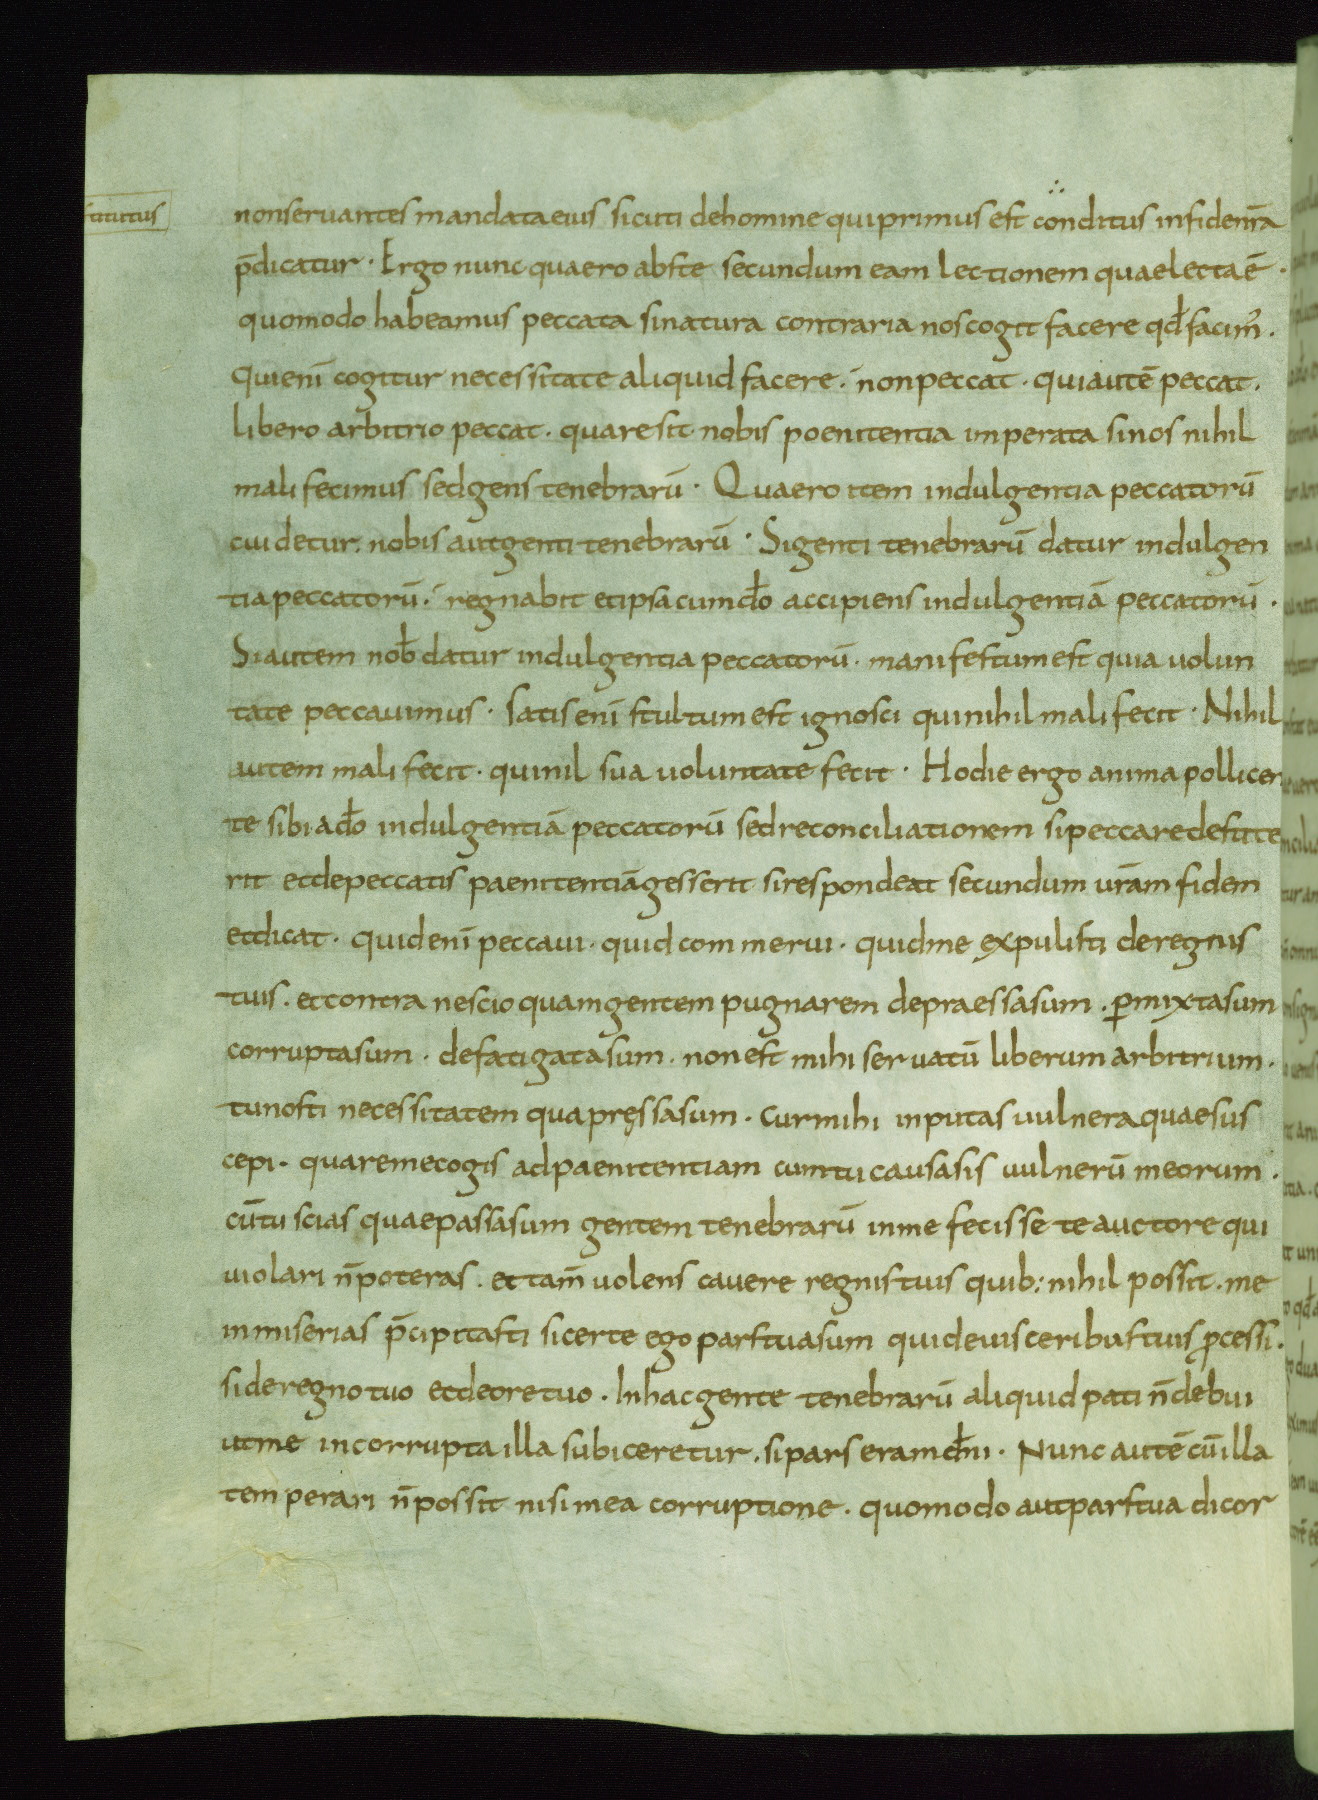 tatutus
nonseruantes mandata eius sicuti dehomine quiprimus est conditus insidentia
p̄dicatur · Ergo nunc quaero abste secundum eam lectionem quaelectaē ·
quomodo habeamus peccata sinatura contraria noscogit facere qđfacim̄ .
Quienī cogitur necessitate aliquid facere . nonpeccat · quiautē peccat .
libero arbitrio peccat . quaresit nobis poenitentia imperata sinos nihil
mali fecimus sedgens tenebrarū · Quaero item indulgentia peccatorū
cui detur . nobis autgenti tenebrarū · Sigenti tenebrarū datur indulgen
tia peccatorū . regnabit etipsa cumđo accipiens indulgentiā peccatorū .
Siautem nob̄ datur indulgentia peccatorū . manifestumest quia uolun
tate peccauimus · satisenī stultumest ignosci quinihil mali fecit · Nihil
autem mali fecit . quinil sua uoluntate fecit · Hodie ergo anima pollicen
te sibi ađo indulgentiā peccatorū sedreconciliationem sipeccaredestite
rit etdepeccatis paenitentiāgesserit sirespondeat secundum ur̄am fidem
etdicat · quidenī peccaui . quid commerui . quidme expulisti deregnis
tuis . etcontra nescio quamgentem pugnarem depraessasum . p̱mixtasum
corruptasum . defatigatasum . nonest mihi seruatū liberum arbitrium .
tunosti necessitatem quapręssasum . curmihi inputas uulnera quaesus
cepi . quaremecogis adpaenitentiam cumtu causasis uulnerū meorum .
cūtu scias quaepassasum gentem tenebrarū inme fecisse te auctore qui
uiolari n̄poteras . et tam̄ uolens cauere regnistuis quib: nihil possit . me
inmiserias p̄cipitasti sicerte ego parstuasum quideuisceribustuis ꝓcessi .
sideregnotuo etdeoretuo . Inhacgente tenebrarū aliquid pati n̄debui
utme incorrupta illa subiceretur . sipars eramdn̄i · Nunc autē cū illa
temperari n̄possit nisi mea corruptione . quomodo autparstua dicor